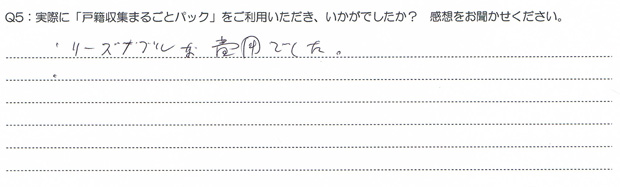 Q5：実際に「戸籍収集まるごとパック」をご利用いただき、いかがでしたか？ 感想をお聞かせください。
リーズナブルな費用でした。